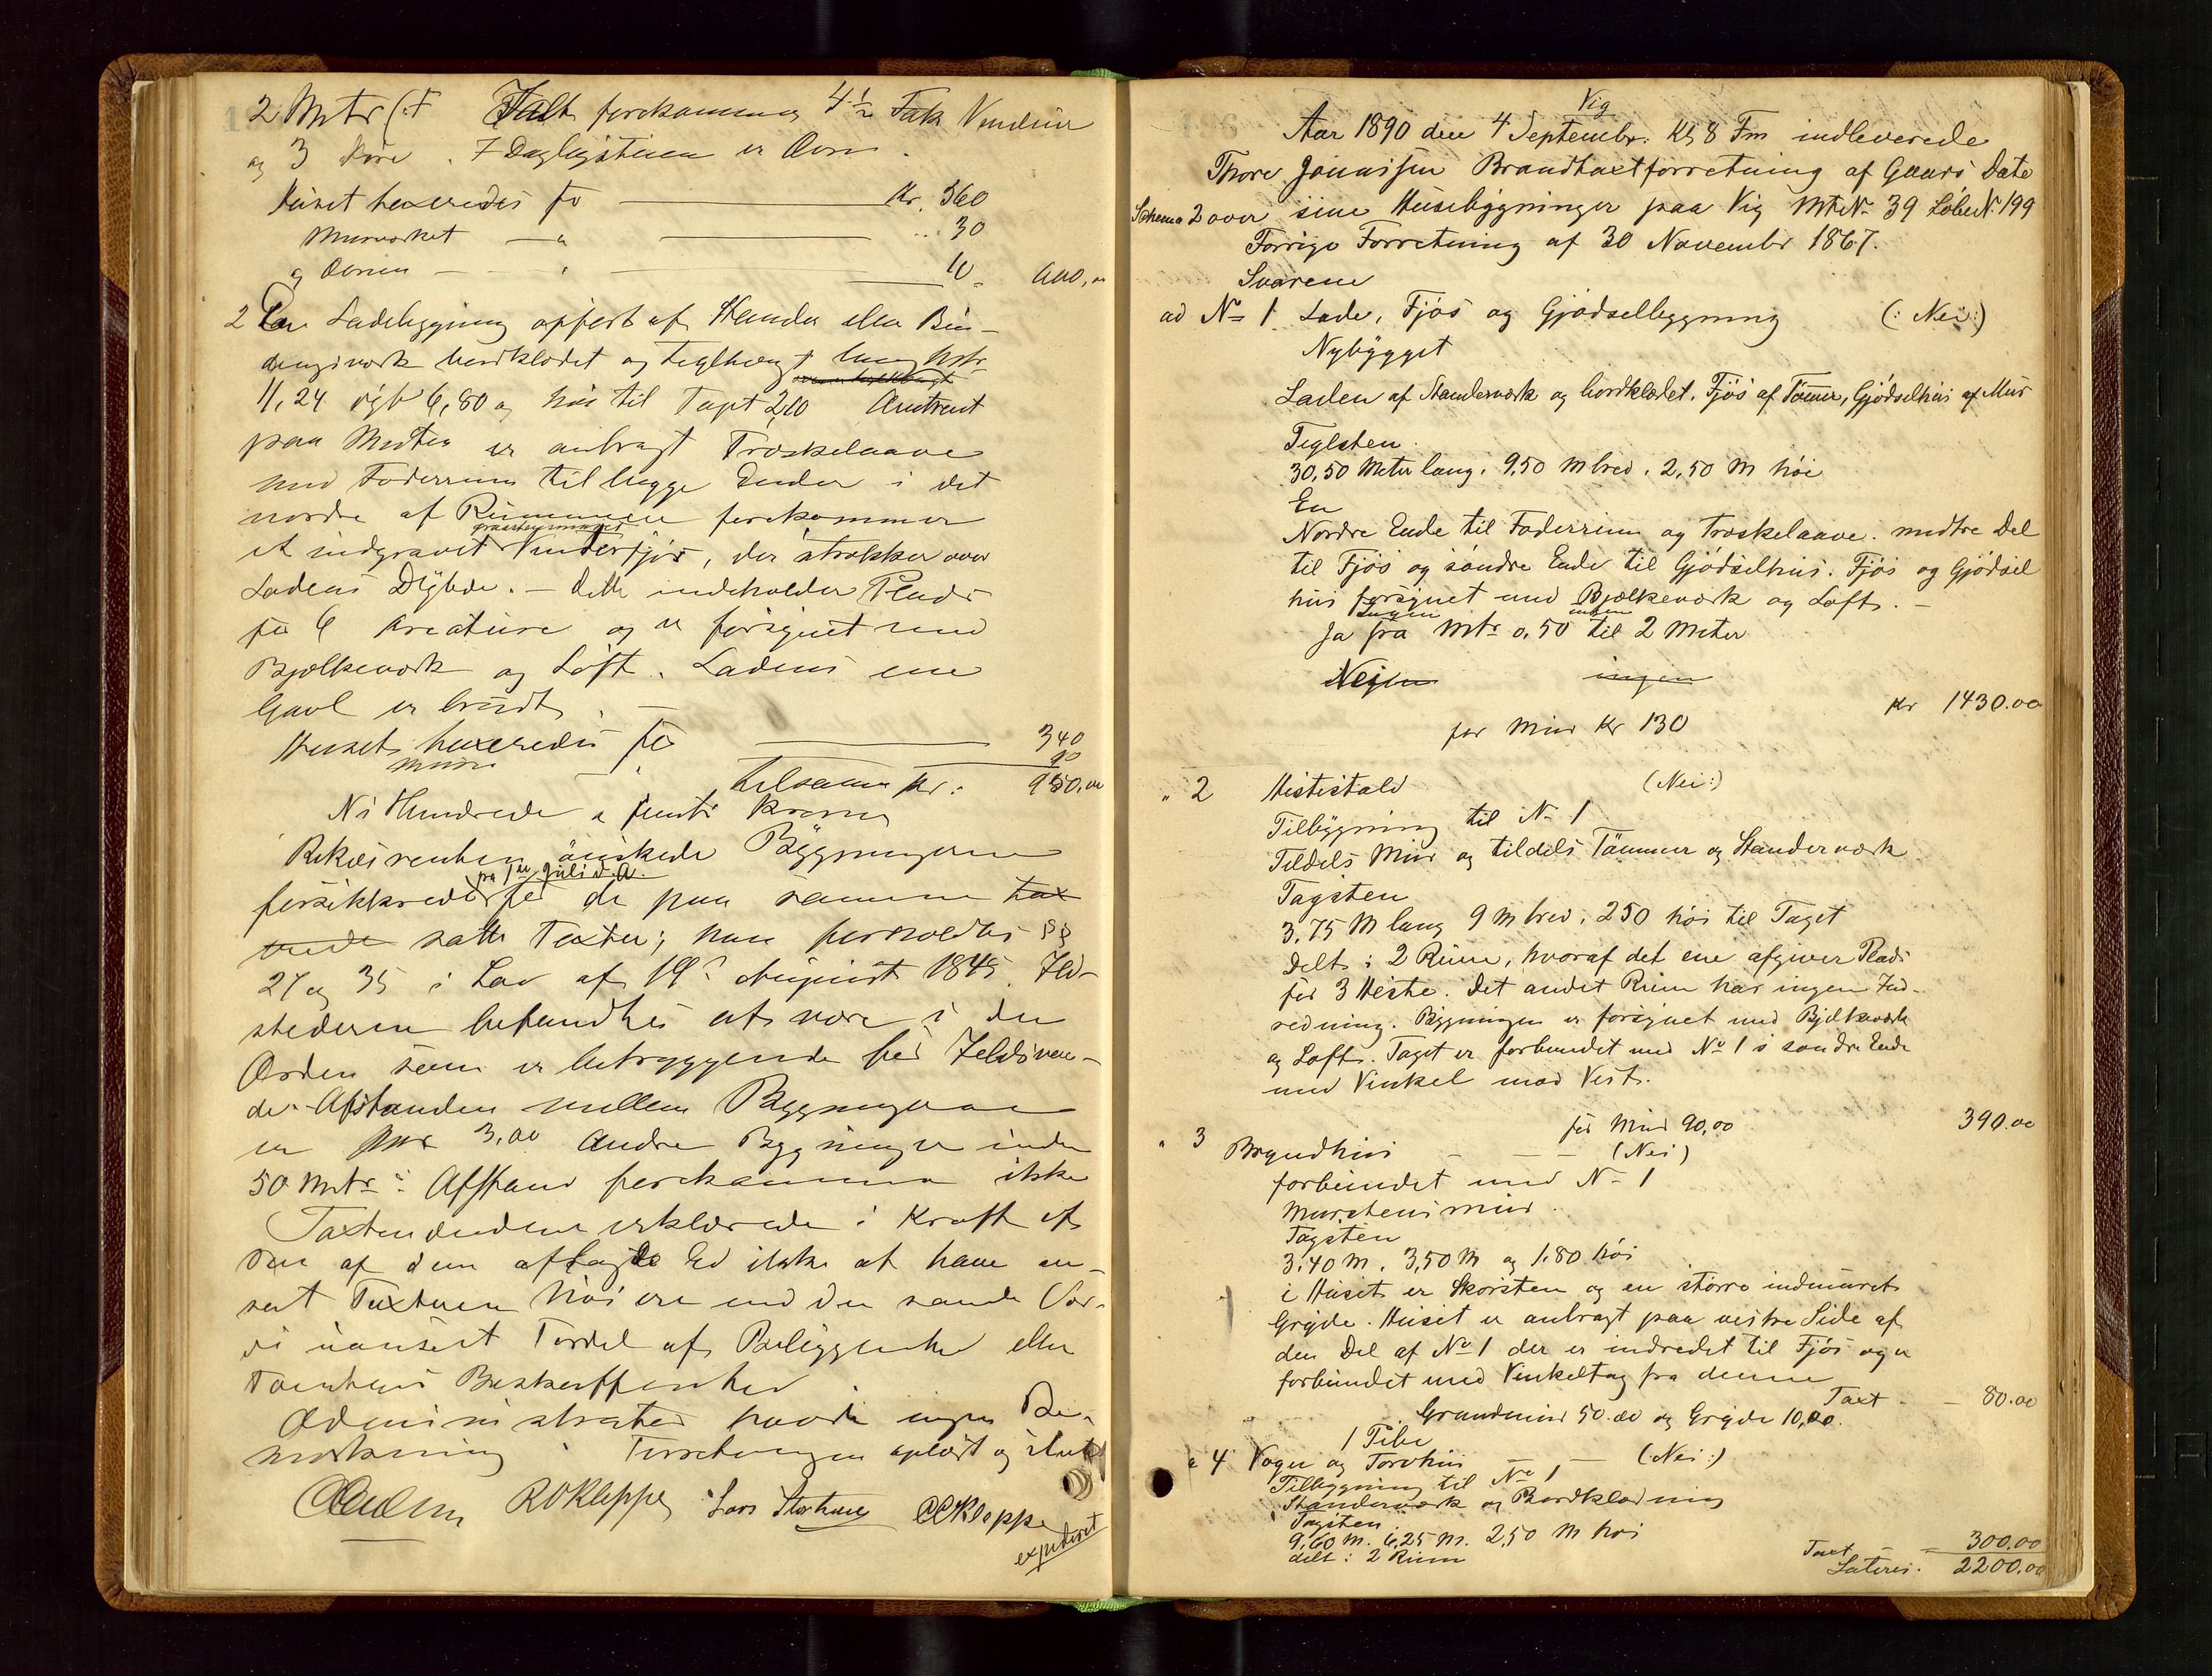 2 Mtr (: F Ialt forekommer 4½ Fak Vinduer
og 3 Døre . I Dagligstuen er Ovn .
Huset taxeredes for Kr. 560
Murværket — " — 30
og Ovnen — " — 10 = 600,00
2 En Ladebygning opført af Stander eller Bin-
dingsværk bordklædt og teglhængt lang Mtr
11,24 vidt 6,80 og høi til Taget 2,10 Omtrent
paa Midten er anbragt Træskelaave
med Foderrum til begge Ender i det
nordre af Rummene forekommer
et indgravet graastensmuret Vinterfjøs, der strækker over
Ladens Dybde. — Dette indeholder Plads
for 6 Kreature og er forsynet med
Bjelkeværk og Loft. Ladens ene
Gavl er brudt . —
Huset taxeredes for 340
Muren — " 10
tilsam Kr: 950,00
Ni Hundrede & femti Kroner
Rekvirenten ønskede Bygningerne
forsikkrede fra 1ste Juli d.A. for de paa samme tax
erede satte Taxter; han foreholdtes §§
27 og 35 i Lov af 19de August 1845. Ild-
stederne befandtes at være i den
Orden som er betryggende for Ildsvaa-
de. Afstanden mellem Bygningerne
er Mtr 3,00 Andre Bygninger inden
50 Mtrs Afstand forekommer ikke
Taxtmændene erklærede i Kraft af
den af dem aflagte Ed ikke at have an-
sat Taxterne høiere end den sande Vær-
di uanseet Fordel af Beliggenhed eller
Tomtens Beskaffenhed
Administrator havde ingen Be-
mærkning . Forretningen oplæst og sluttet
R O Kleppe Lars Storhaug O C Kleppe
expederet
Vig
Aar 1890 den 4 Septembr. Kl 8 Fm indleverede
Thore Jonassen Brandtaxtforretning af Gaars Dato
Schema 2 over sine Husebygninger paa Vig Mt No 39 Løbe N. 199
Forrige Forretning af 30 Novembr 1867.
Svarene
ad No 1 Lade, Fjøs og Gjødselbygning (: Nei :)
Nybygget
Laden af Standerværk og bordklædet. Fjøs af Tømmer, Gjødselhus af Mur
Teglsten.
30,50 Meter lang. 9,50 M bred. 2,50 M høi
En
Nordre Ende til Foderrum og Træskelaave. midtre Del
til Fjøs og søndre Ende til Gjødselhus. Fjøs og Gjødsel
hus forsynet med Bjælkeværk og Loft. —
Ingen ingen
Ja fra Mtr 0,50 til 2 Meter
Nejen ingen
Kr 1430.00
for Mur Kr 130
" 2 Hestestald (Nei:)
Tilbygning til No 1
Tildels Mur og tildels Tømmer og Standerværk
Tagsten
3,75 M lang 9 M bred, 250 høi til Taget
Delt i 2 Rum, hvoraf det ene afgiver Plads
for 3 Heste. Det andet Rum har ingen Ind-
redning. Bygningen er forsynet med Bjelkeværk
og Loft. Taget er forbundet med No 1 's søndre Ende
med Vinkel mod Vest.
for Mur 90,00 390.00
" 3 Bryndhus — — — (Nei)
forbundet med No 1
Murstensmur.
Tagsten
3,40 M. 3,50 M og 1.80 høi
i Huset er Skorsten og en større indmuret
Gryde. Huset er anbragt paa vestre Side af
den Del af No 1 der er indredet til Fjøs og er
forbundet med Vinkeltag fra denne
Taxt — 80.00
Grundmur 50.00 og Gryde 10,00.
1 Pibe
" 4 Vogn og Torvhus — — (Nei:)
Tilbygning til No 1
Standerværk og Bordklædning
Tagsten
9,60 M. 6,25 M. 2,50 M høi
delt i 2 Rum
Taxt — = 300.00
Lateris. 2200.00